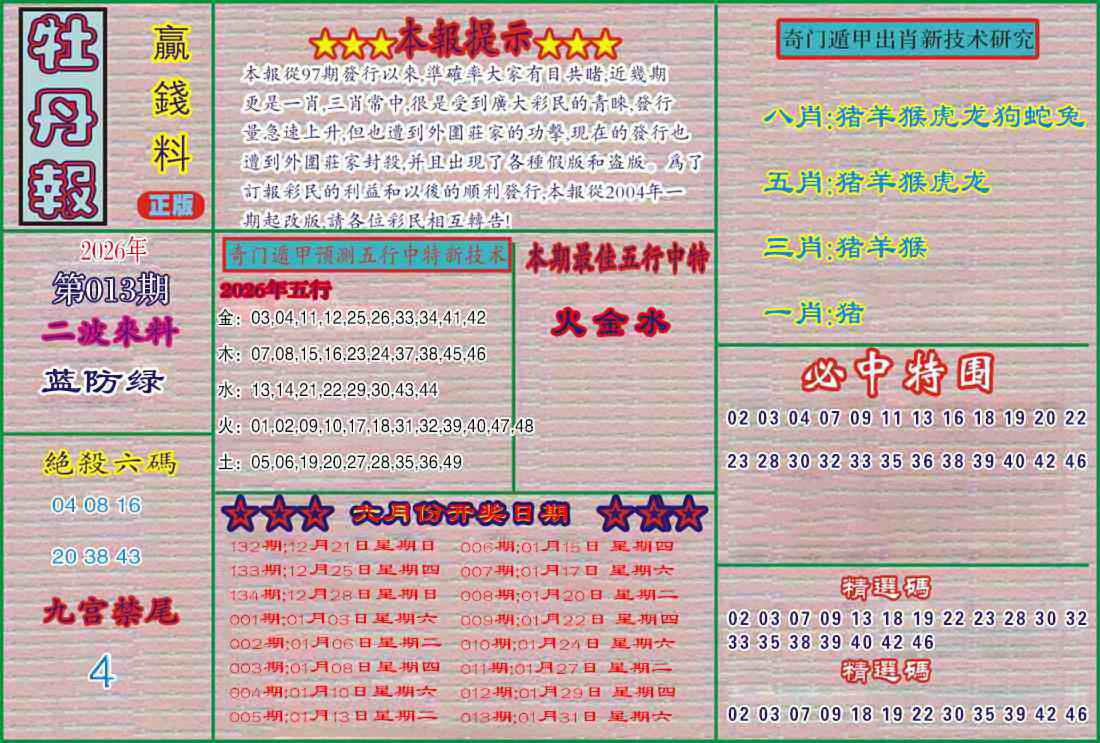 牡丹報
贏錢料
正版
2026年
第013期
二波來料
蓝防绿
絕殺六碼
04 08 16
20 38 43
九宫禁尾
4
★★★本報提示★★★
本報從97期發行以來,準確率大家有目共睹,近幾期
更是一肖,三肖常中,很是受到廣大彩民的青睞,發行
量急速上升,但也遭到外圍莊家的功擊,現在的發行也
遭到外圍莊家封殺,并且出現了各種假版和盗版。爲了
訂報彩民的利益和以後的順利發行,本報從2004年一
期起改版,請各位彩民相互轉告!
奇门遁甲预测五行中特新技术
2026年五行
金：03,04,11,12,25,26,33,34,41,42
木：07,08,15,16,23,24,37,38,45,46
水：13,14,21,22,29,30,43,44
火：01,02,09,10,17,18,31,32,39,40,47,48
土：05,06,19,20,27,28,35,36,49
本期最佳五行中特
火金水
☆☆☆ 六月份开奖日期 ☆☆☆
132期;12月21日星期日 006期;01月15日 星期四
133期;12月25日星期四 007期;01月17日 星期六
134期;12月28日 星期日 008期;01月20日 星期二
001期;01月03日 星期六 009期;01月22日 星期四
002期;01月06日 星期二 010期;01月24日 星期六
003期;01月08日 星期四 011期;01月27日 星期二
004期;01月10日 星期六 012期;01月29日 星期四
005期;01月13日 星期二 013期;01月31日 星期六
奇门遁甲出肖新技术研究
八肖:猪羊猴虎龙狗蛇兔
五肖:猪羊猴虎龙
三肖:猪羊猴
一肖:猪
必中特围
02 03 04 07 09 11 13 16 18 19 20 22
23 28 30 32 33 35 36 38 39 40 42 46
精選碼
02 03 07 09 13 18 19 22 23 28 30 32
33 35 38 39 40 42 46
精選碼
02 03 07 09 18 19 22 30 35 39 42 46